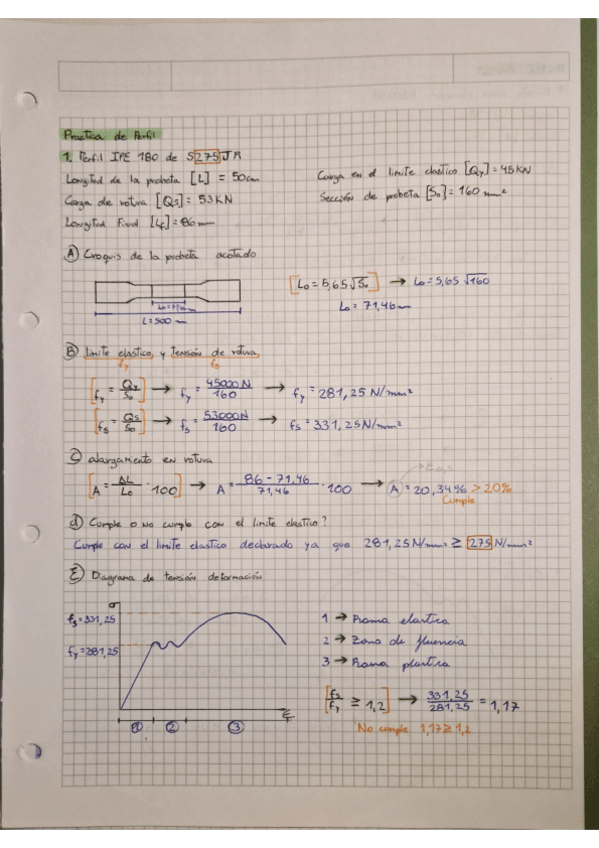 Practica de Perfil
1. Perfil IPE 180 de S275JR
Longitud de la probeta [L] = 50cm
Carga en el limite elastico [Qy] = 45KN
Carga de rotura [Qs] = 53KN
Sección de probeta [So] = 160 mm²
Longitud Final [Lf] = 86mm
A) Croquis de la probeta acotado
[Lo = 5,65 √So] → Lo = 5,65 √160
Lo = 71,46mm
L = 500 mm
B) limite elastico, y tensión de rotura,
fy fs
[fy = Qy/So] → fy = 45000N/160 → fy = 281,25 N/mm²
[fs = Qs/So] → fs = 53000N/160 → fs = 331,25N/mm²
C) alargamiento en rotura
[A = ΔL/Lo · 100] → A = 86 - 71,46/71,46 · 100 → A = 20,34% > 20%
Cumple
d) Cumple o no cumple con el limite elastico?
Cumple con el limite elastico declarado ya que 281,25N/mm² ≥ 275 N/mm²
E) Diagrama de tensión deformación
σ
fs=331,25
fy=281,25
ε
1 2 3
1 → Rama elastica
2 → Zona de fluencia
3 → Rama plastica
[fs/fy ≥ 1,2] → 331,25/281,25 = 1,17
No cumple 1,17 ≥ 1,2